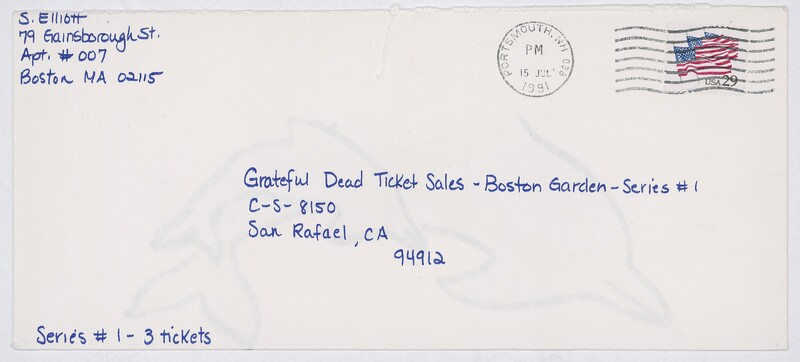 S. Elliott
79 Gainsborough St.
Apt. # 007
Boston MA 02115
PORTSMOUTH, NH 038
PM
15 JUL
1991
USA 29
Grateful Dead Ticket Sales - Boston Garden - Series # 1
C-S- 8150
San Rafael, CA
94912
Series # 1 - 3 tickets